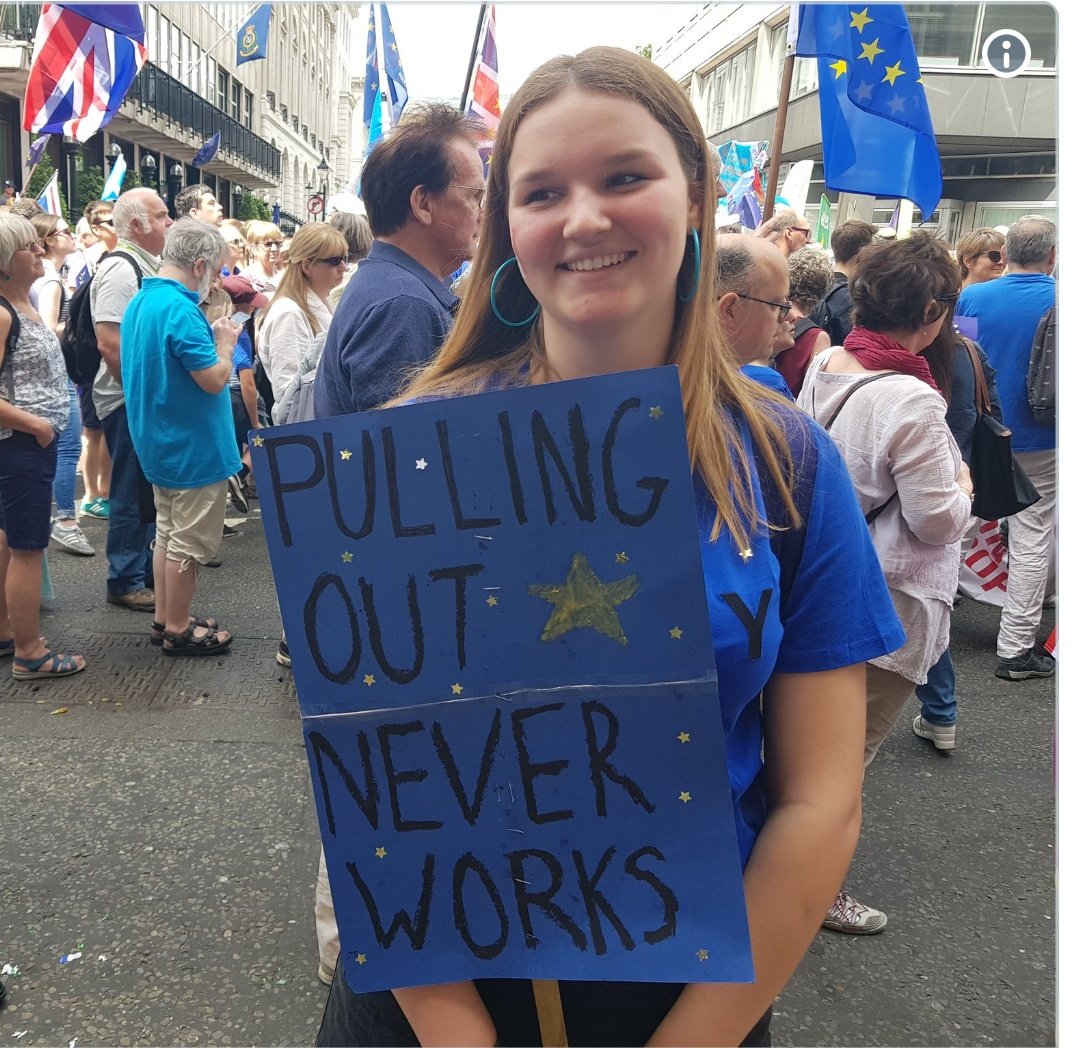 PULLING
OUT
NEVER
WORKS
Y